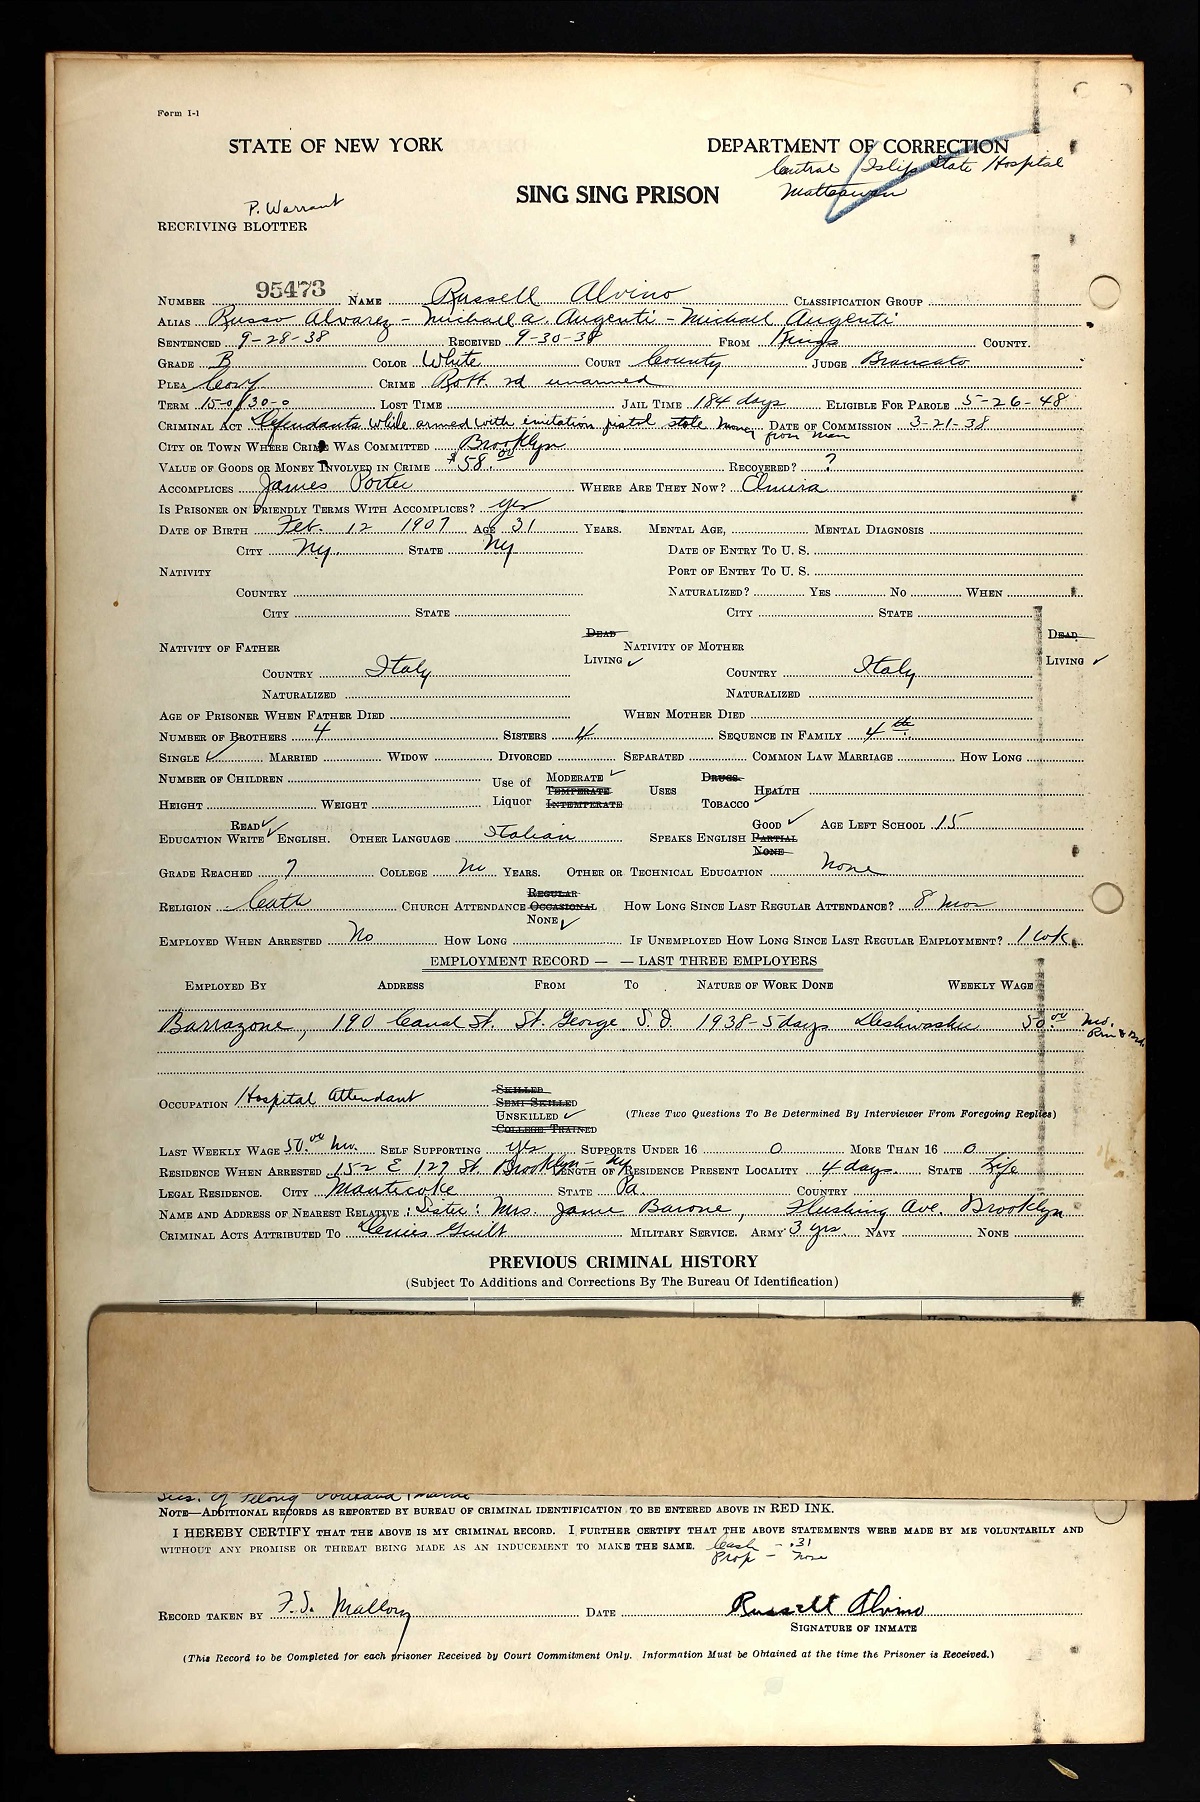 Form I-1
STATE OF NEW YORK DEPARTMENT OF CORRECTION
Central Islip State Hospital
SING SING PRISON Matteawan
P. Warrant
RECEIVING BLOTTER
NUMBER 95473 NAME Russell Alvino CLASSIFICATION GROUP
ALIAS Russo Alvarez - Michael A. Augenti - Michael Augenti
SENTENCED 9-28-38 RECEIVED 9-30-38 FROM Kings COUNTY.
GRADE B COLOR White COURT County JUDGE Brancato
PLEA Conf CRIME Robb. 2d unarmed
TERM 15-0/30-0 LOST TIME JAIL TIME 184 days ELIGIBLE FOR PAROLE 5-26-48
CRIMINAL ACT Defendants while armed with imitation pistol stole money from man DATE OF COMMISSION 3-21-38
CITY OR TOWN WHERE CRIME WAS COMMITTED Brooklyn
VALUE OF GOODS OR MONEY INVOLVED IN CRIME $58.00 RECOVERED? ?
ACCOMPLICES James Porter WHERE ARE THEY NOW? Elmira
IS PRISONER ON FRIENDLY TERMS WITH ACCOMPLICES? yes
DATE OF BIRTH Feb. 12 1907 AGE 31 YEARS. MENTAL AGE, MENTAL DIAGNOSIS
CITY Ny. STATE Ny DATE OF ENTRY TO U. S.
NATIVITY PORT OF ENTRY TO U. S.
COUNTRY NATURALIZED? YES NO WHEN
CITY STATE CITY STATE
DEAD DEAD
NATIVITY OF FATHER NATIVITY OF MOTHER
LIVING ✓ LIVING ✓
COUNTRY Italy COUNTRY Italy
NATURALIZED NATURALIZED
AGE OF PRISONER WHEN FATHER DIED WHEN MOTHER DIED
NUMBER OF BROTHERS 4 SISTERS 4 SEQUENCE IN FAMILY 4th
SINGLE ✓ MARRIED WIDOW DIVORCED SEPARATED COMMON LAW MARRIAGE HOW LONG
NUMBER OF CHILDREN Use of MODERATE ✓ DRUGS
TEMPERATE USES HEALTH
HEIGHT WEIGHT Liquor INTEMPERATE TOBACCO ✓
READ ✓ GOOD ✓ AGE LEFT SCHOOL 15
EDUCATION WRITE ✓ ENGLISH. OTHER LANGUAGE Italian SPEAKS ENGLISH PARTIAL
NONE
GRADE REACHED 7 COLLEGE No YEARS. OTHER OR TECHNICAL EDUCATION None
REGULAR
RELIGION Cath CHURCH ATTENDANCE OCCASIONAL HOW LONG SINCE LAST REGULAR ATTENDANCE? 8 mos
NONE ✓
EMPLOYED WHEN ARRESTED No HOW LONG IF UNEMPLOYED HOW LONG SINCE LAST REGULAR EMPLOYMENT? 1 wk.
EMPLOYMENT RECORD — — LAST THREE EMPLOYERS
EMPLOYED BY ADDRESS FROM TO NATURE OF WORK DONE WEEKLY WAGE
Barrazone, 190 Canal St. St. George S.I. 1938 - 5 days Dishwasher 50.00 mo.
Rm & Brd.
OCCUPATION Hospital Attendant SKILLED
SEMI SKILLED
UNSKILLED ✓ (These Two Questions To Be Determined By Interviewer From Foregoing Replies)
COLLEGE TRAINED
LAST WEEKLY WAGE 50.00 mo. SELF SUPPORTING yes SUPPORTS UNDER 16 0 MORE THAN 16 0
RESIDENCE WHEN ARRESTED 152 E 129 St. Brooklyn Ny LENGTH OF RESIDENCE PRESENT LOCALITY 4 days. STATE Life
LEGAL RESIDENCE. CITY Nanticoke STATE Pa. COUNTRY
NAME AND ADDRESS OF NEAREST RELATIVE: Sister: Mrs. Jane Barone, Flushing Ave. Brooklyn
CRIMINAL ACTS ATTRIBUTED TO Denies Guilt MILITARY SERVICE. ARMY 3 yrs. NAVY NONE
PREVIOUS CRIMINAL HISTORY
(Subject To Additions and Corrections By The Bureau Of Identification)
NOTE—ADDITIONAL RECORDS AS REPORTED BY BUREAU OF CRIMINAL IDENTIFICATION TO BE ENTERED ABOVE IN RED INK.
I HEREBY CERTIFY THAT THE ABOVE IS MY CRIMINAL RECORD. I FURTHER CERTIFY THAT THE ABOVE STATEMENTS WERE MADE BY ME VOLUNTARILY AND
WITHOUT ANY PROMISE OR THREAT BEING MADE AS AN INDUCEMENT TO MAKE THE SAME. Cash - .31
Prop - None
RECORD TAKEN BY F.S. Mallory DATE Russell Alvino
SIGNATURE OF INMATE
(This Record to be Completed for each prisoner Received by Court Commitment Only. Information Must be Obtained at the time the Prisoner is Received.)